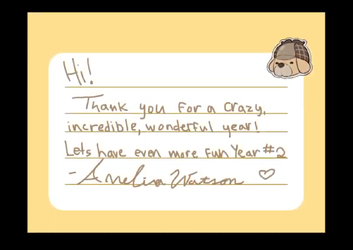 Hi!
Thank you for a crazy,
incredible, wonderful year!
Lets have even more fun Year #2
- Amelia Watson ♡